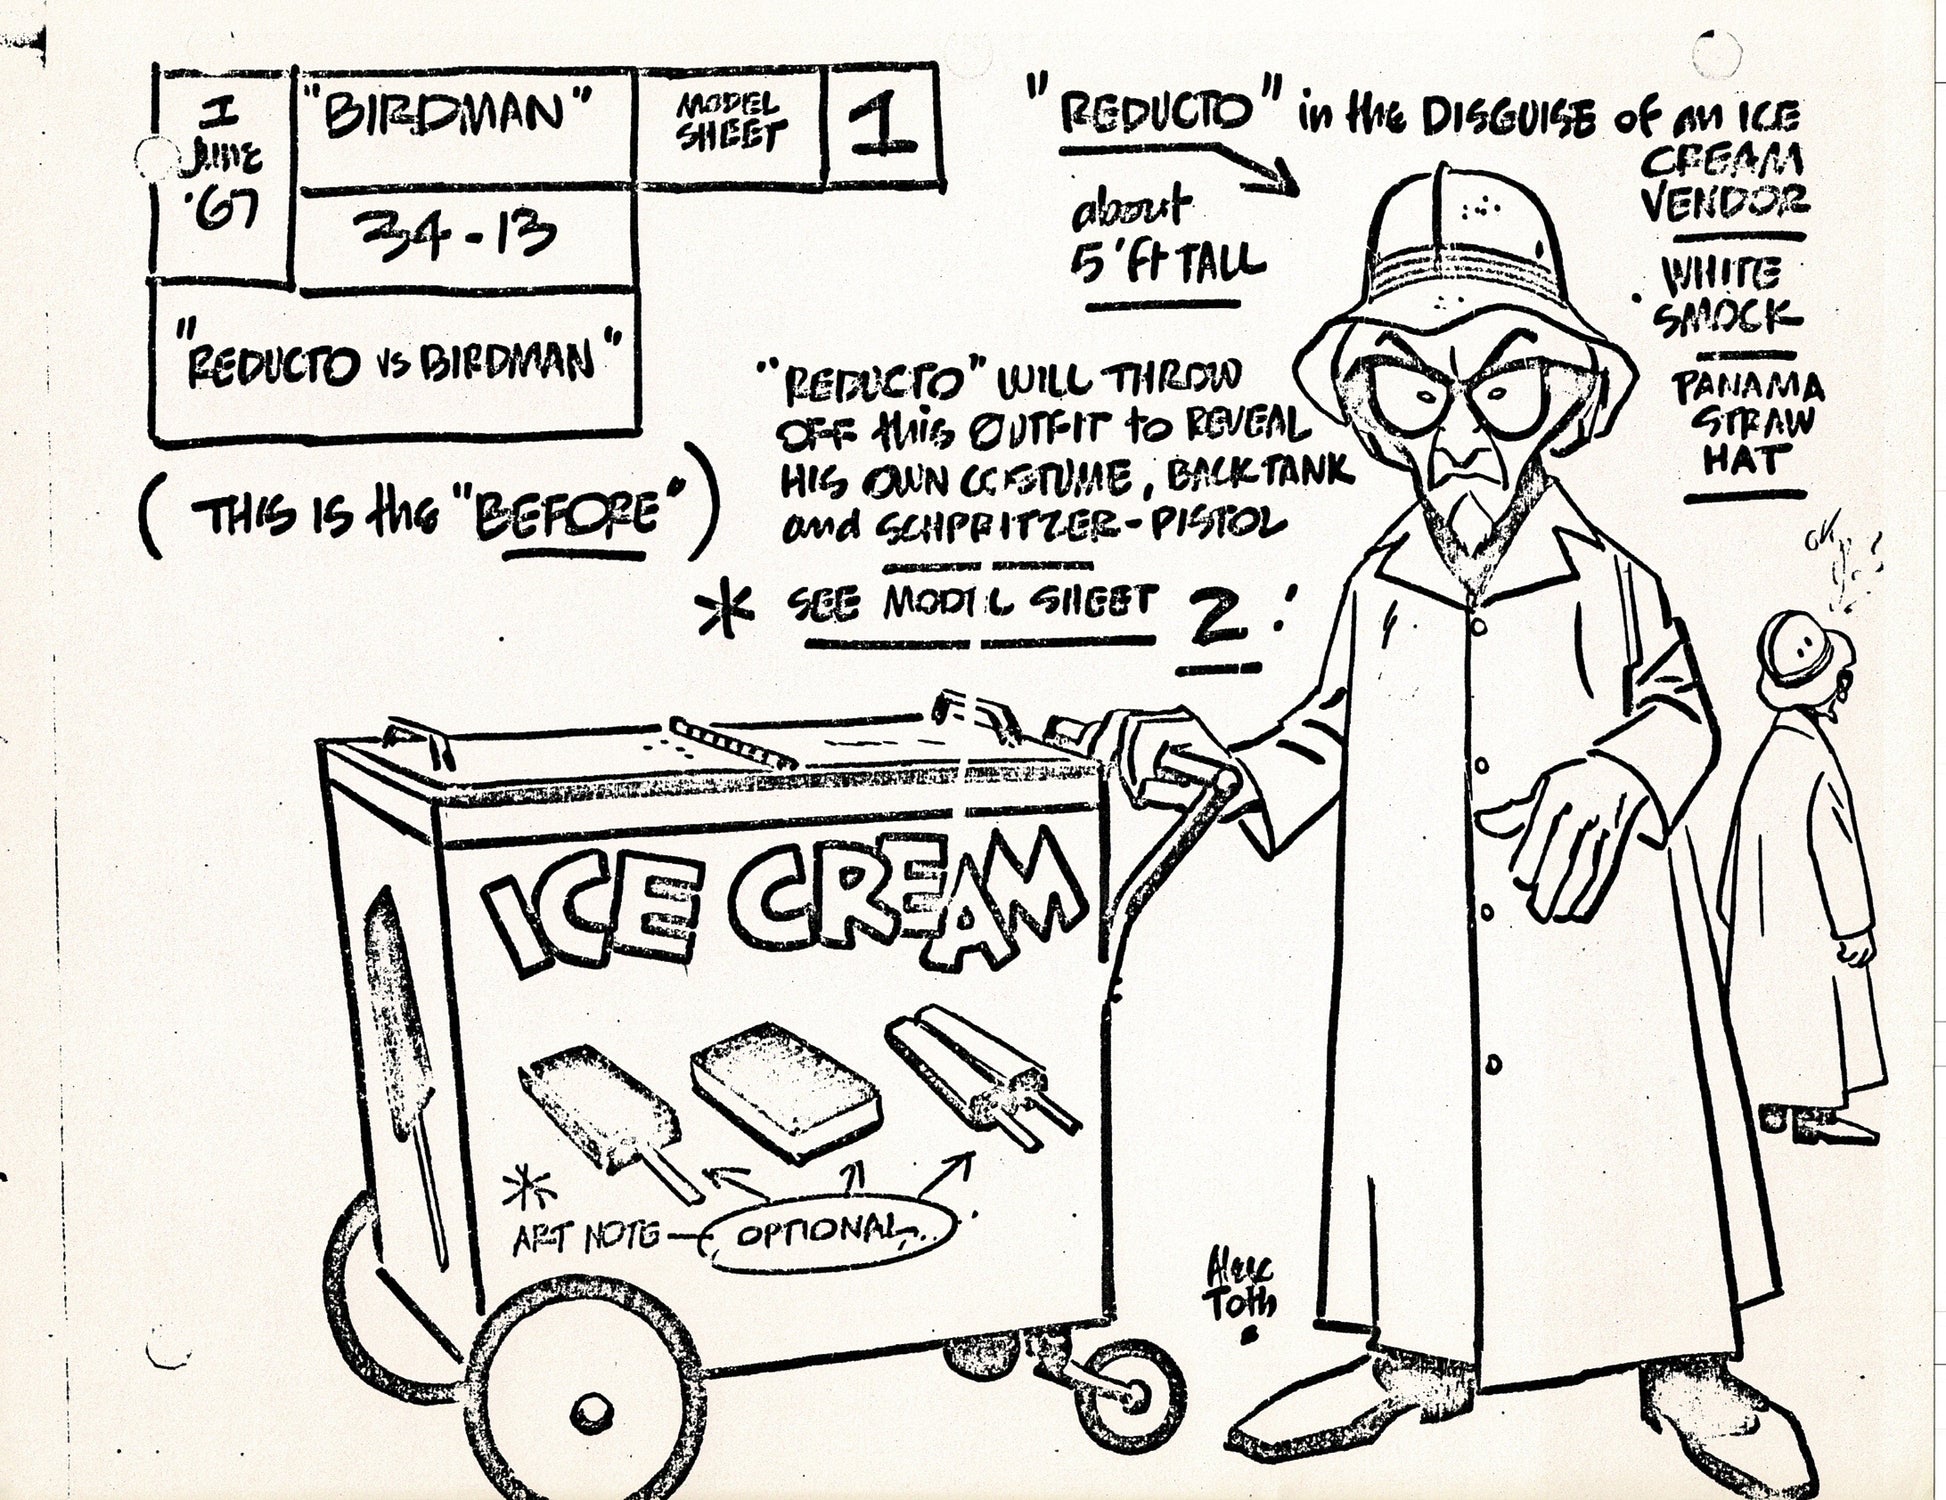 1
June
'67
"BIRDMAN"
MODEL
SHEET
1
34-13
"REDUCTO vs BIRDMAN"
(THIS IS the "BEFORE")
"REDUCTO" in the DISGUISE of an ICE
CREAM
VENDOR
about
5'ft TALL
WHITE
SMOCK
PANAMA
STRAW
HAT
"REDUCTO" WILL THROW
OFF this OUTFIT to REVEAL
HIS OWN COSTUME, BACKTANK
and SCHPRITZER-PISTOL
* SEE MODEL SHEET 2!
ICE CREAM
*
ART NOTE — OPTIONAL...
Alex
Toth